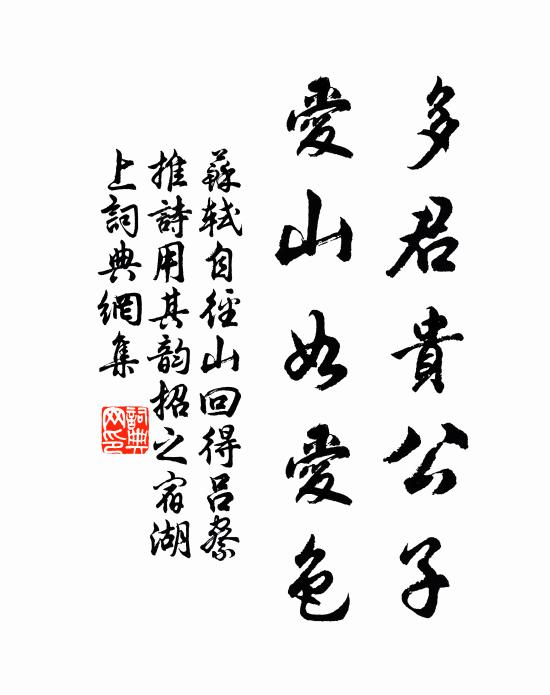 多君貴公子
愛山如愛色
蘇軾自徑山回得呂察
推詩用其韵招之宿湖
上詞典網集
詞典
网印